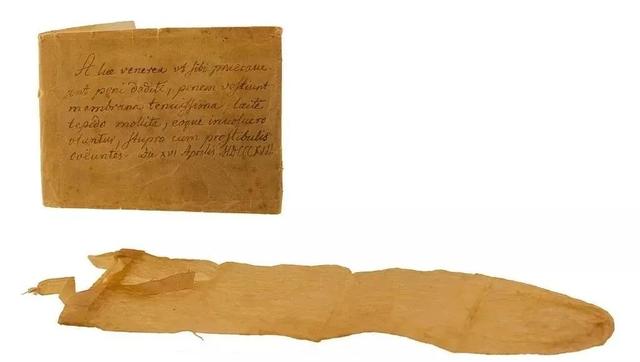 A lue venerea ut sibi praecave-
ant peni dediti, penem vestiunt
membrana tenuissima, lacte
tepido mollita, eoque involucro
utuntur, stupro cum prostibulis
coëuntes. Die XVI Aprilis MDCCCXIII